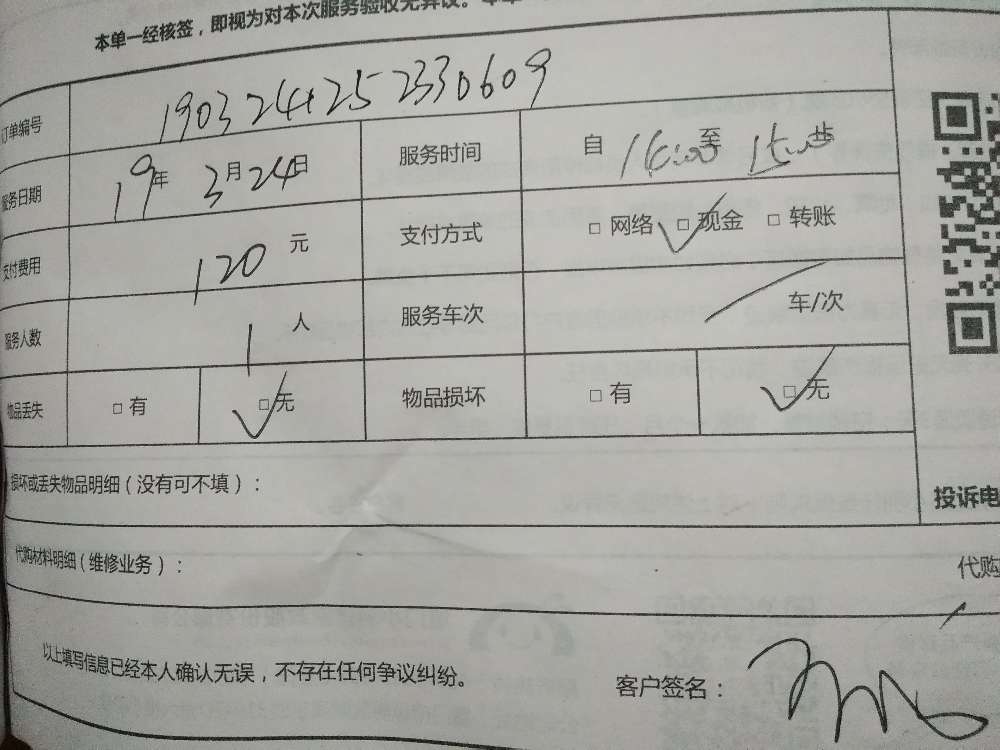 本单一经核签，即视为对本次服务验收无异议。本单
订单编号 1903241252330609
服务日期 19年 3月24日 服务时间 自 14:00 至 15:00 止
支付费用 120 元 支付方式 □ 网络 □ 现金 □ 转账
服务人数 1 人 服务车次 / 车/次
物品丢失 □ 有 □ 无 物品损坏 □ 有 □ 无
损坏或丢失物品明细（没有可不填）：
投诉电
代购材料明细（维修业务）：
代购
以上填写信息已经本人确认无误，不存在任何争议纠纷。
客户签名：